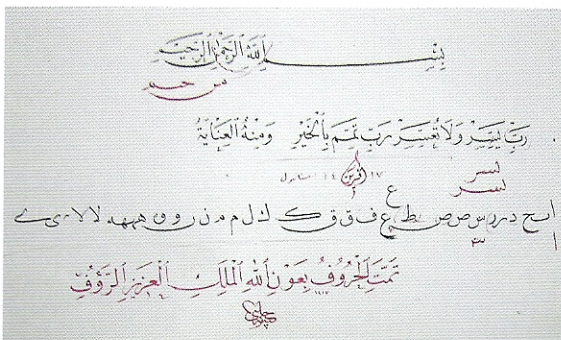 بِسْمِ اللهِ الرَّحْمٰنِ الرَّحِيمِ
س حم
رَبِّ يَسِّرْ وَلَا تُعَسِّرْ رَبِّ تَمِّمْ بِالْخَيْرِ وَمِنْهُ الْعِنَايَةُ
يسر
يسر
ع
ا ب ج د ر و س ص ص ط ع ف ق ق ك ك ل م م ن ر و و ه هه لا لا ى ے
تَمَّتِ الْحُرُوفُ بِعَوْنِ اللهِ الْمَلِكِ الْعَزِيزِ الرَّؤُفِ